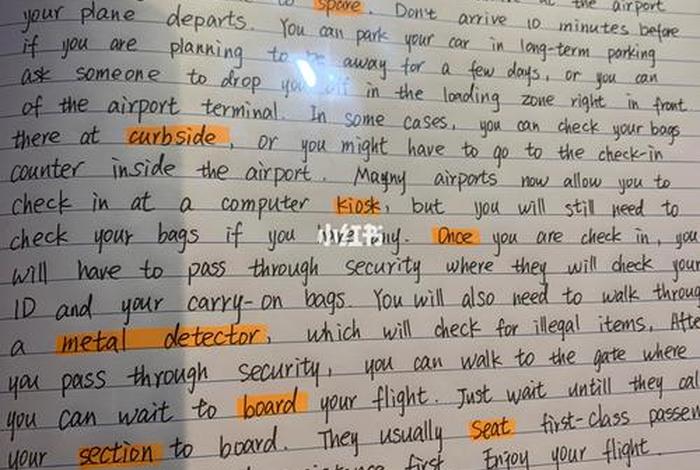 to spare. Don't arrive at the airport
your plane departs. You can park your car in long-term parking 10 minutes before
if you are planning to be away for a few days, or you can
ask someone to drop you off in the loading zone right in front
of the airport terminal. In some cases, you can check your bags
there at curbside, or you might have to go to the check-in
counter inside the airport. Magny airports now allow you to
check in at a computer kiosk, but you will still need to
check your bags if you have any. Once you are check in, you
will have to pass through security where they will check your
ID and your carry-on bags. You will also need to walk throug
a metal detector, which will check for illegal items. Afte
you pass through security, you can walk to the gate where
you can wait to board your flight. Just wait untill they cal
your section to board. They usually seat first-class passen
first Enjoy your flight.
小红书